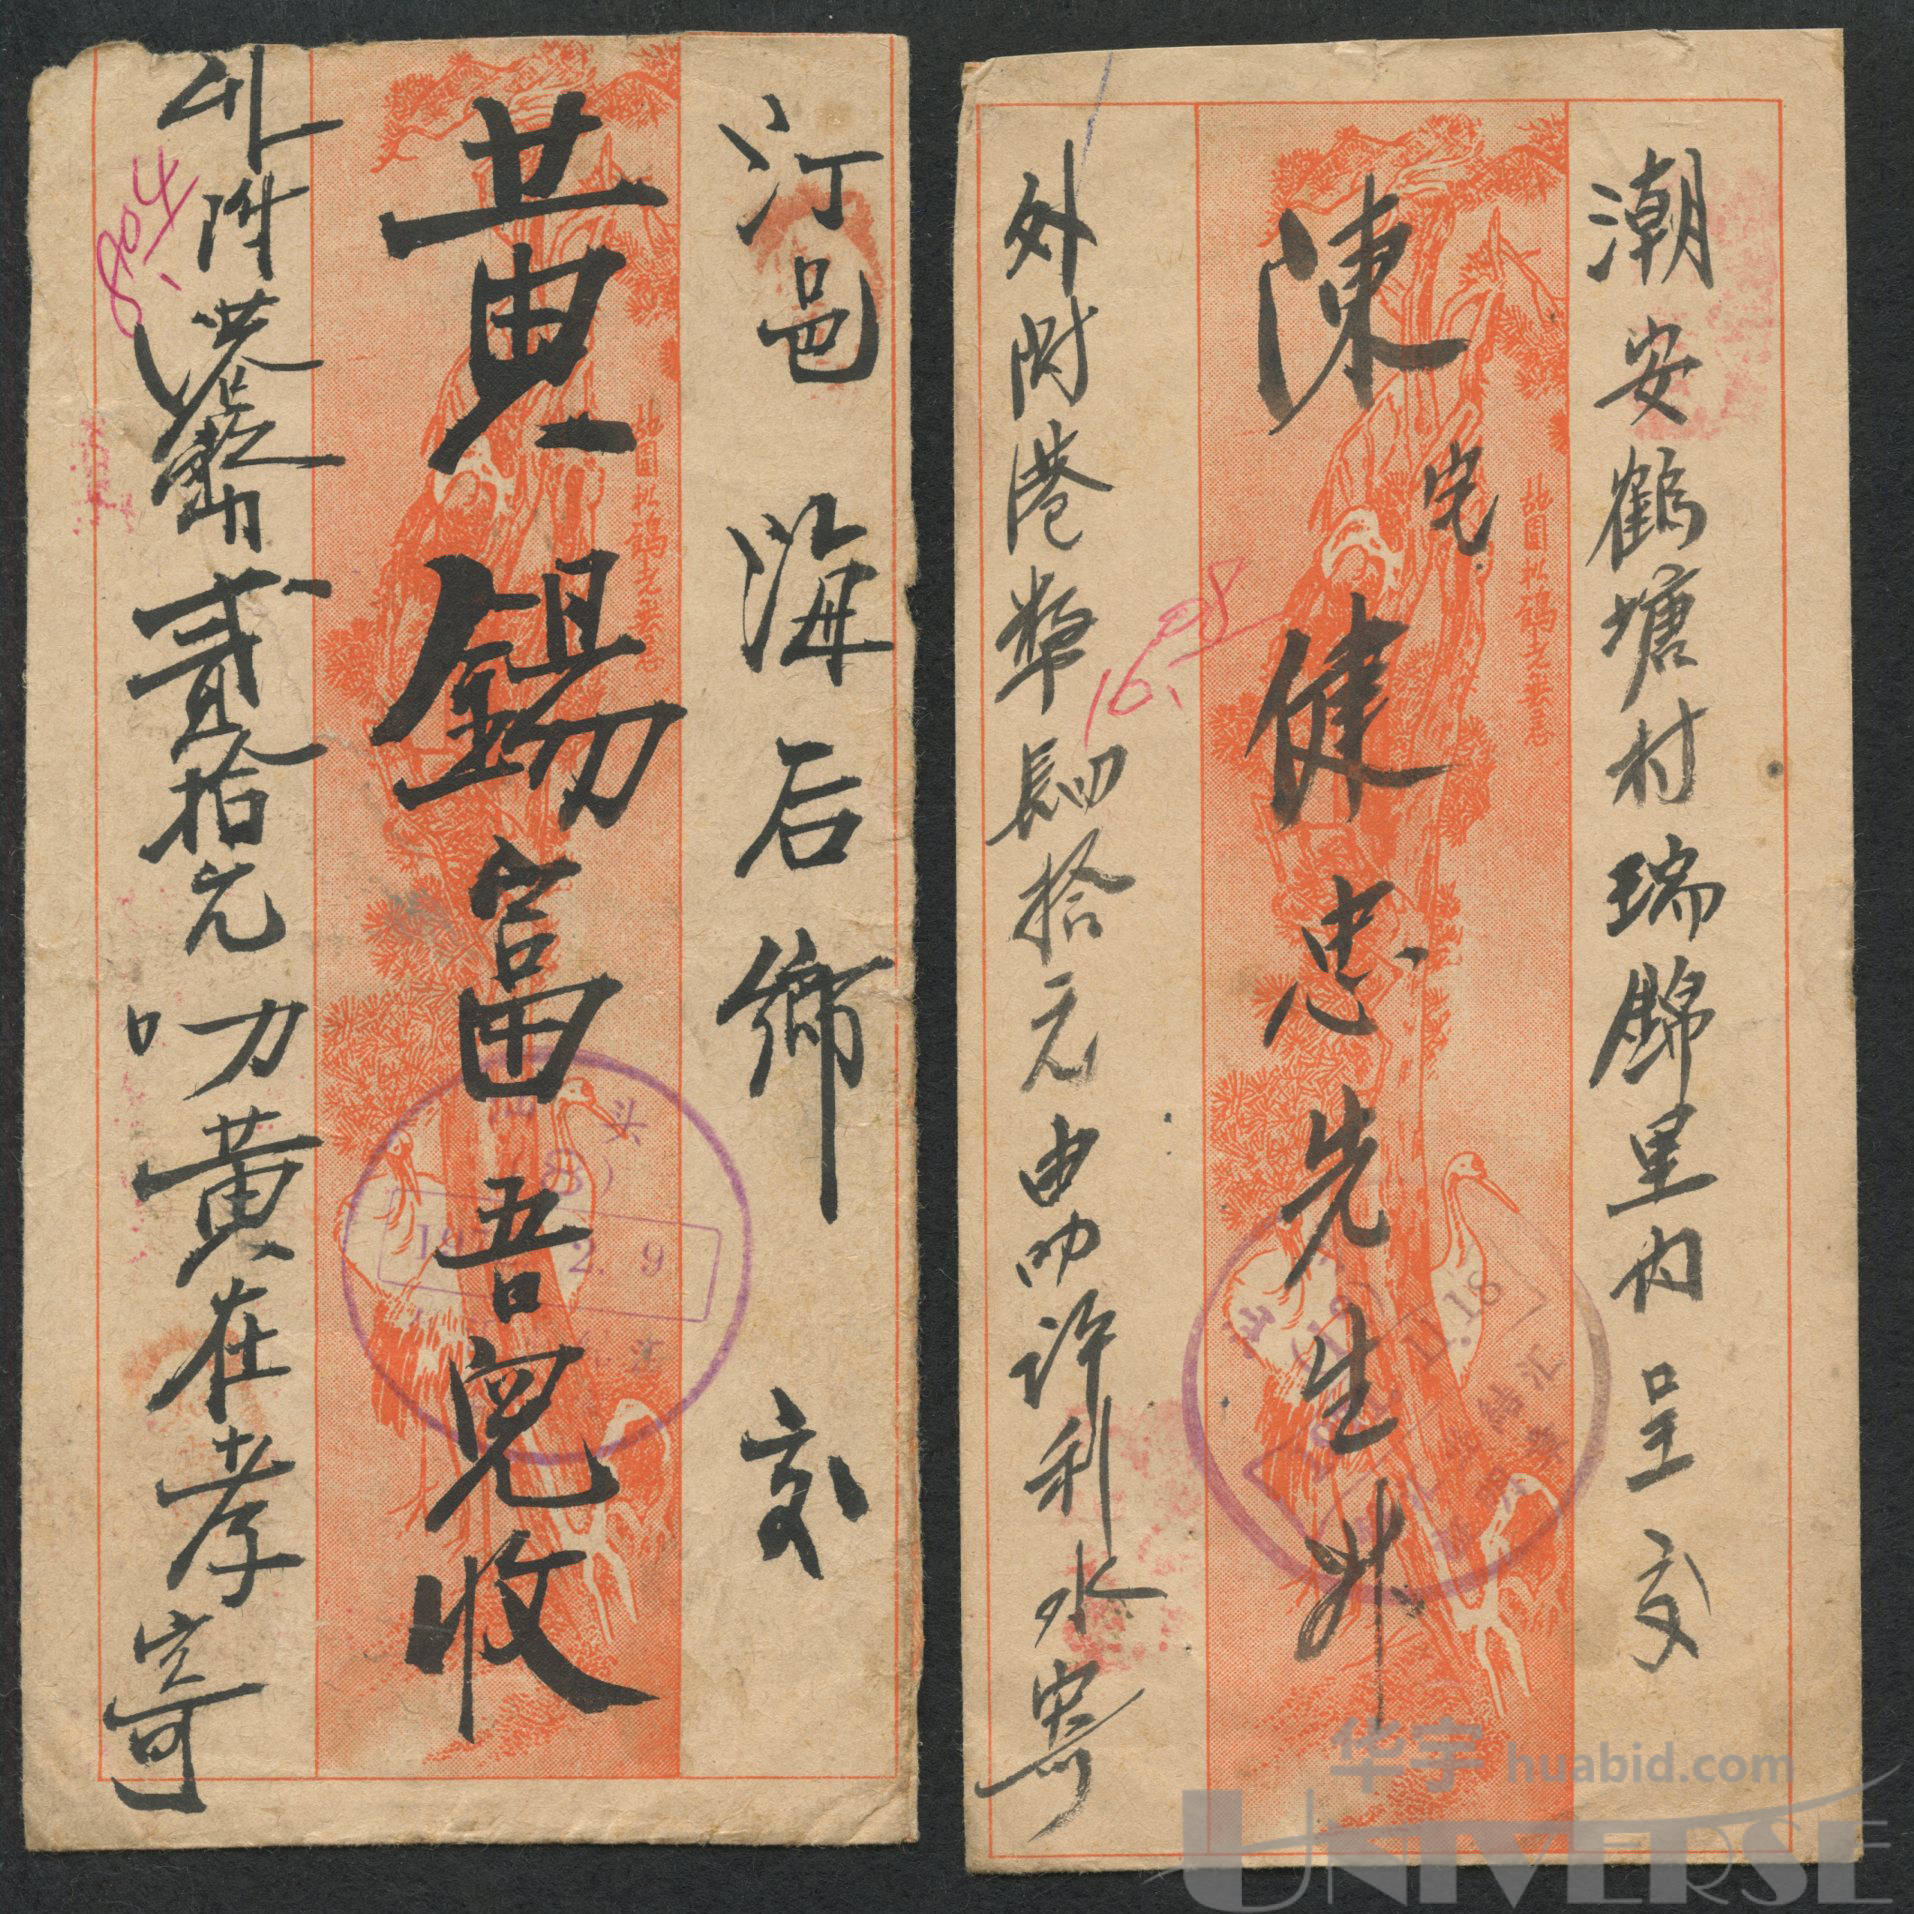 汀邑 海后鄉 交
黃錫富吾兒收
外附港幣貳拾元 叻黃在孝寄
804
汕头
(8)
2. 9
潮安鶴塘村瑞錦里內呈交
陳宅健忠先生升
外附港幣肆拾元由叻許利水寄
16.
98
汕
(18)
11.18
华宇 huabid.com
UNIVERSE